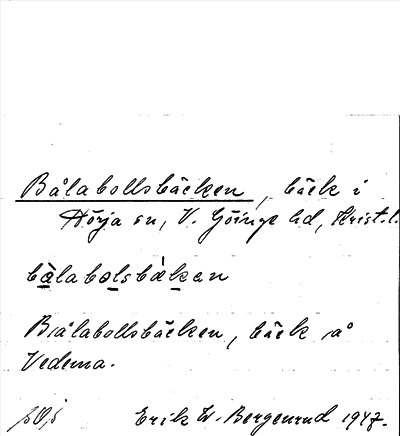 Bålabollsbäcken, bäck i
Hörja sn, V. Göinge hd, Krist. l.
bålabolsbäkan
Bålabollsbäcken, bäck på
Vedema.
Erik W. Bergenrud 1947.